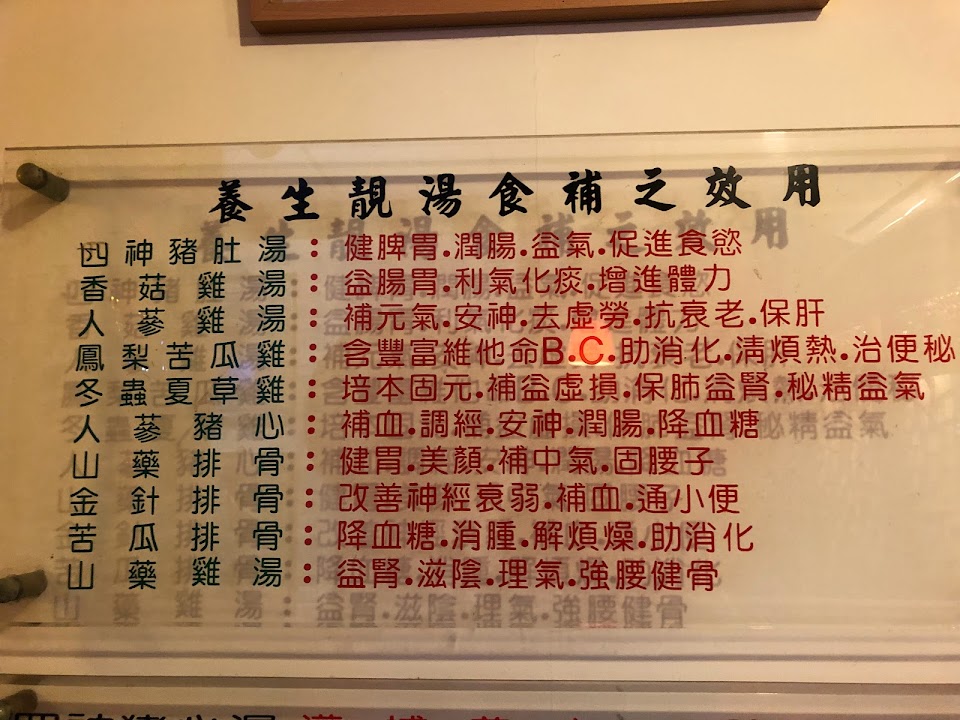 養生靚湯食補之效用
四神豬肚湯：健脾胃.潤腸.益氣.促進食慾
香菇雞湯：益腸胃.利氣化痰.增進體力
人蔘雞湯：補元氣.安神.去虛勞.抗衰老.保肝
鳳梨苦瓜雞：含豐富維他命B.C.助消化.清煩熱.治便秘
冬蟲夏草雞：培本固元.補益虛損.保肺益腎.秘精益氣
人蔘豬心：補血.調經.安神.潤腸.降血糖
山藥排骨：健胃.美顏.補中氣.固腰子
金針排骨：改善神經衰弱.補血.通小便
苦瓜排骨：降血糖.消腫.解煩燥.助消化
山藥雞湯：益腎.滋陰.理氣.強腰健骨